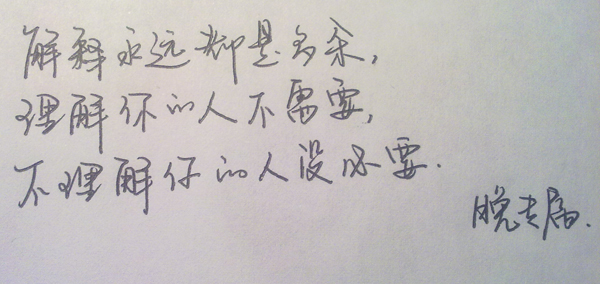 解释永远都是多余,
理解你的人不需要,
不理解你的人没必要.
晚专属.